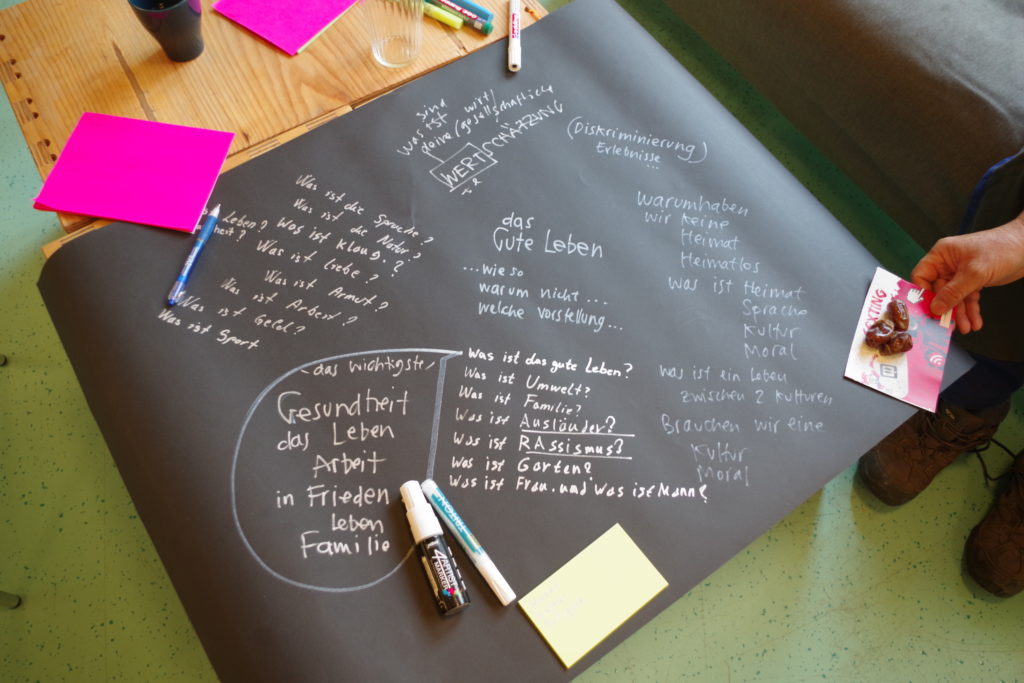 sind
was ist wirt
deine (gesellschaftliche
WERTSCHÄTZUNG
(Diskriminierung)
Erlebnisse...
Was ist die Sprache?
Was ist die Natur?
Leben? Was ist Klang.?
heit? Was ist Liebe?
Was ist Armut?
Was ist Arbeit?
Was ist Geld?
Was ist Sport
das
Gute Leben
...wie so
warum nicht...
welche vorstellung...
warumhaben
wir keine
Heimat
Heimatlos
was ist Heimat
Sprache
Kultur
Moral
was ist ein Leben
zwischen 2 Kulturen
Brauchen wir eine
Kultur
Moral
das wichtigste
Gesundheit
das Leben
Arbeit
in Frieden
leben
Familie
Was ist das gute Leben?
Was ist Umwelt?
Was ist Familie?
Was ist Ausländer?
Was ist RAssismus?
Was ist Garten?
Was ist Frau. und Was ist Mann?
4ARTIST
MARKER